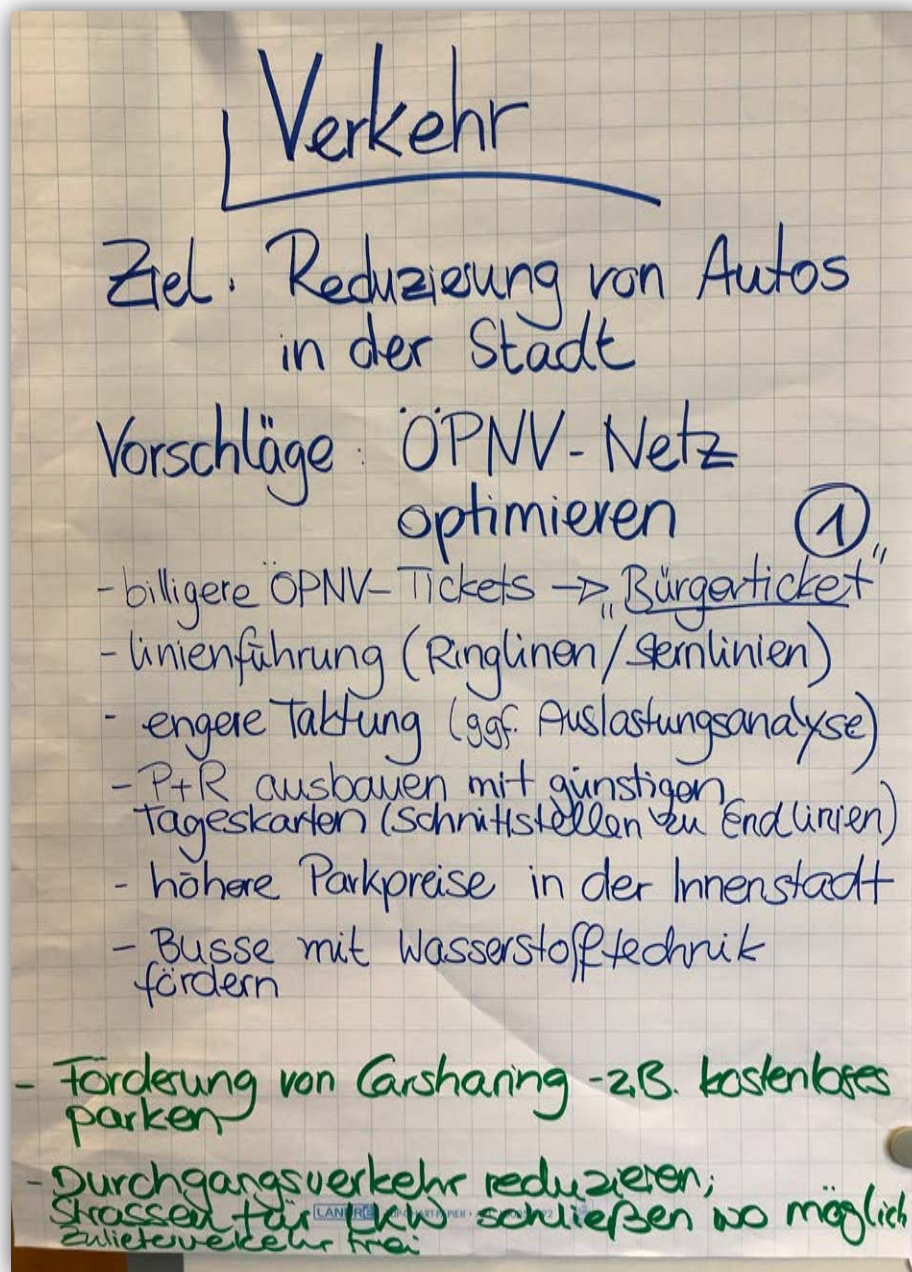 Verkehr
Ziel: Reduzierung von Autos
in der Stadt
Vorschläge: ÖPNV-Netz
optimieren ①
- billigere ÖPNV-Tickets -> „Bürgerticket"
- linienführung (Ringlinen/Sternlinien)
- engere Taktung (ggf. Auslastungsanalyse)
- P+R ausbauen mit günstigen
Tageskarten (Schnittstellen zu Endlinien)
- höhere Parkpreise in der Innenstadt
- Busse mit Wasserstofftechnik
fördern
- Förderung von Carsharing - z.B. kostenloses
parken
- Durchgangsverkehr reduzieren;
Strassen für LKW schließen wo möglich
Zulieferverkehr frei